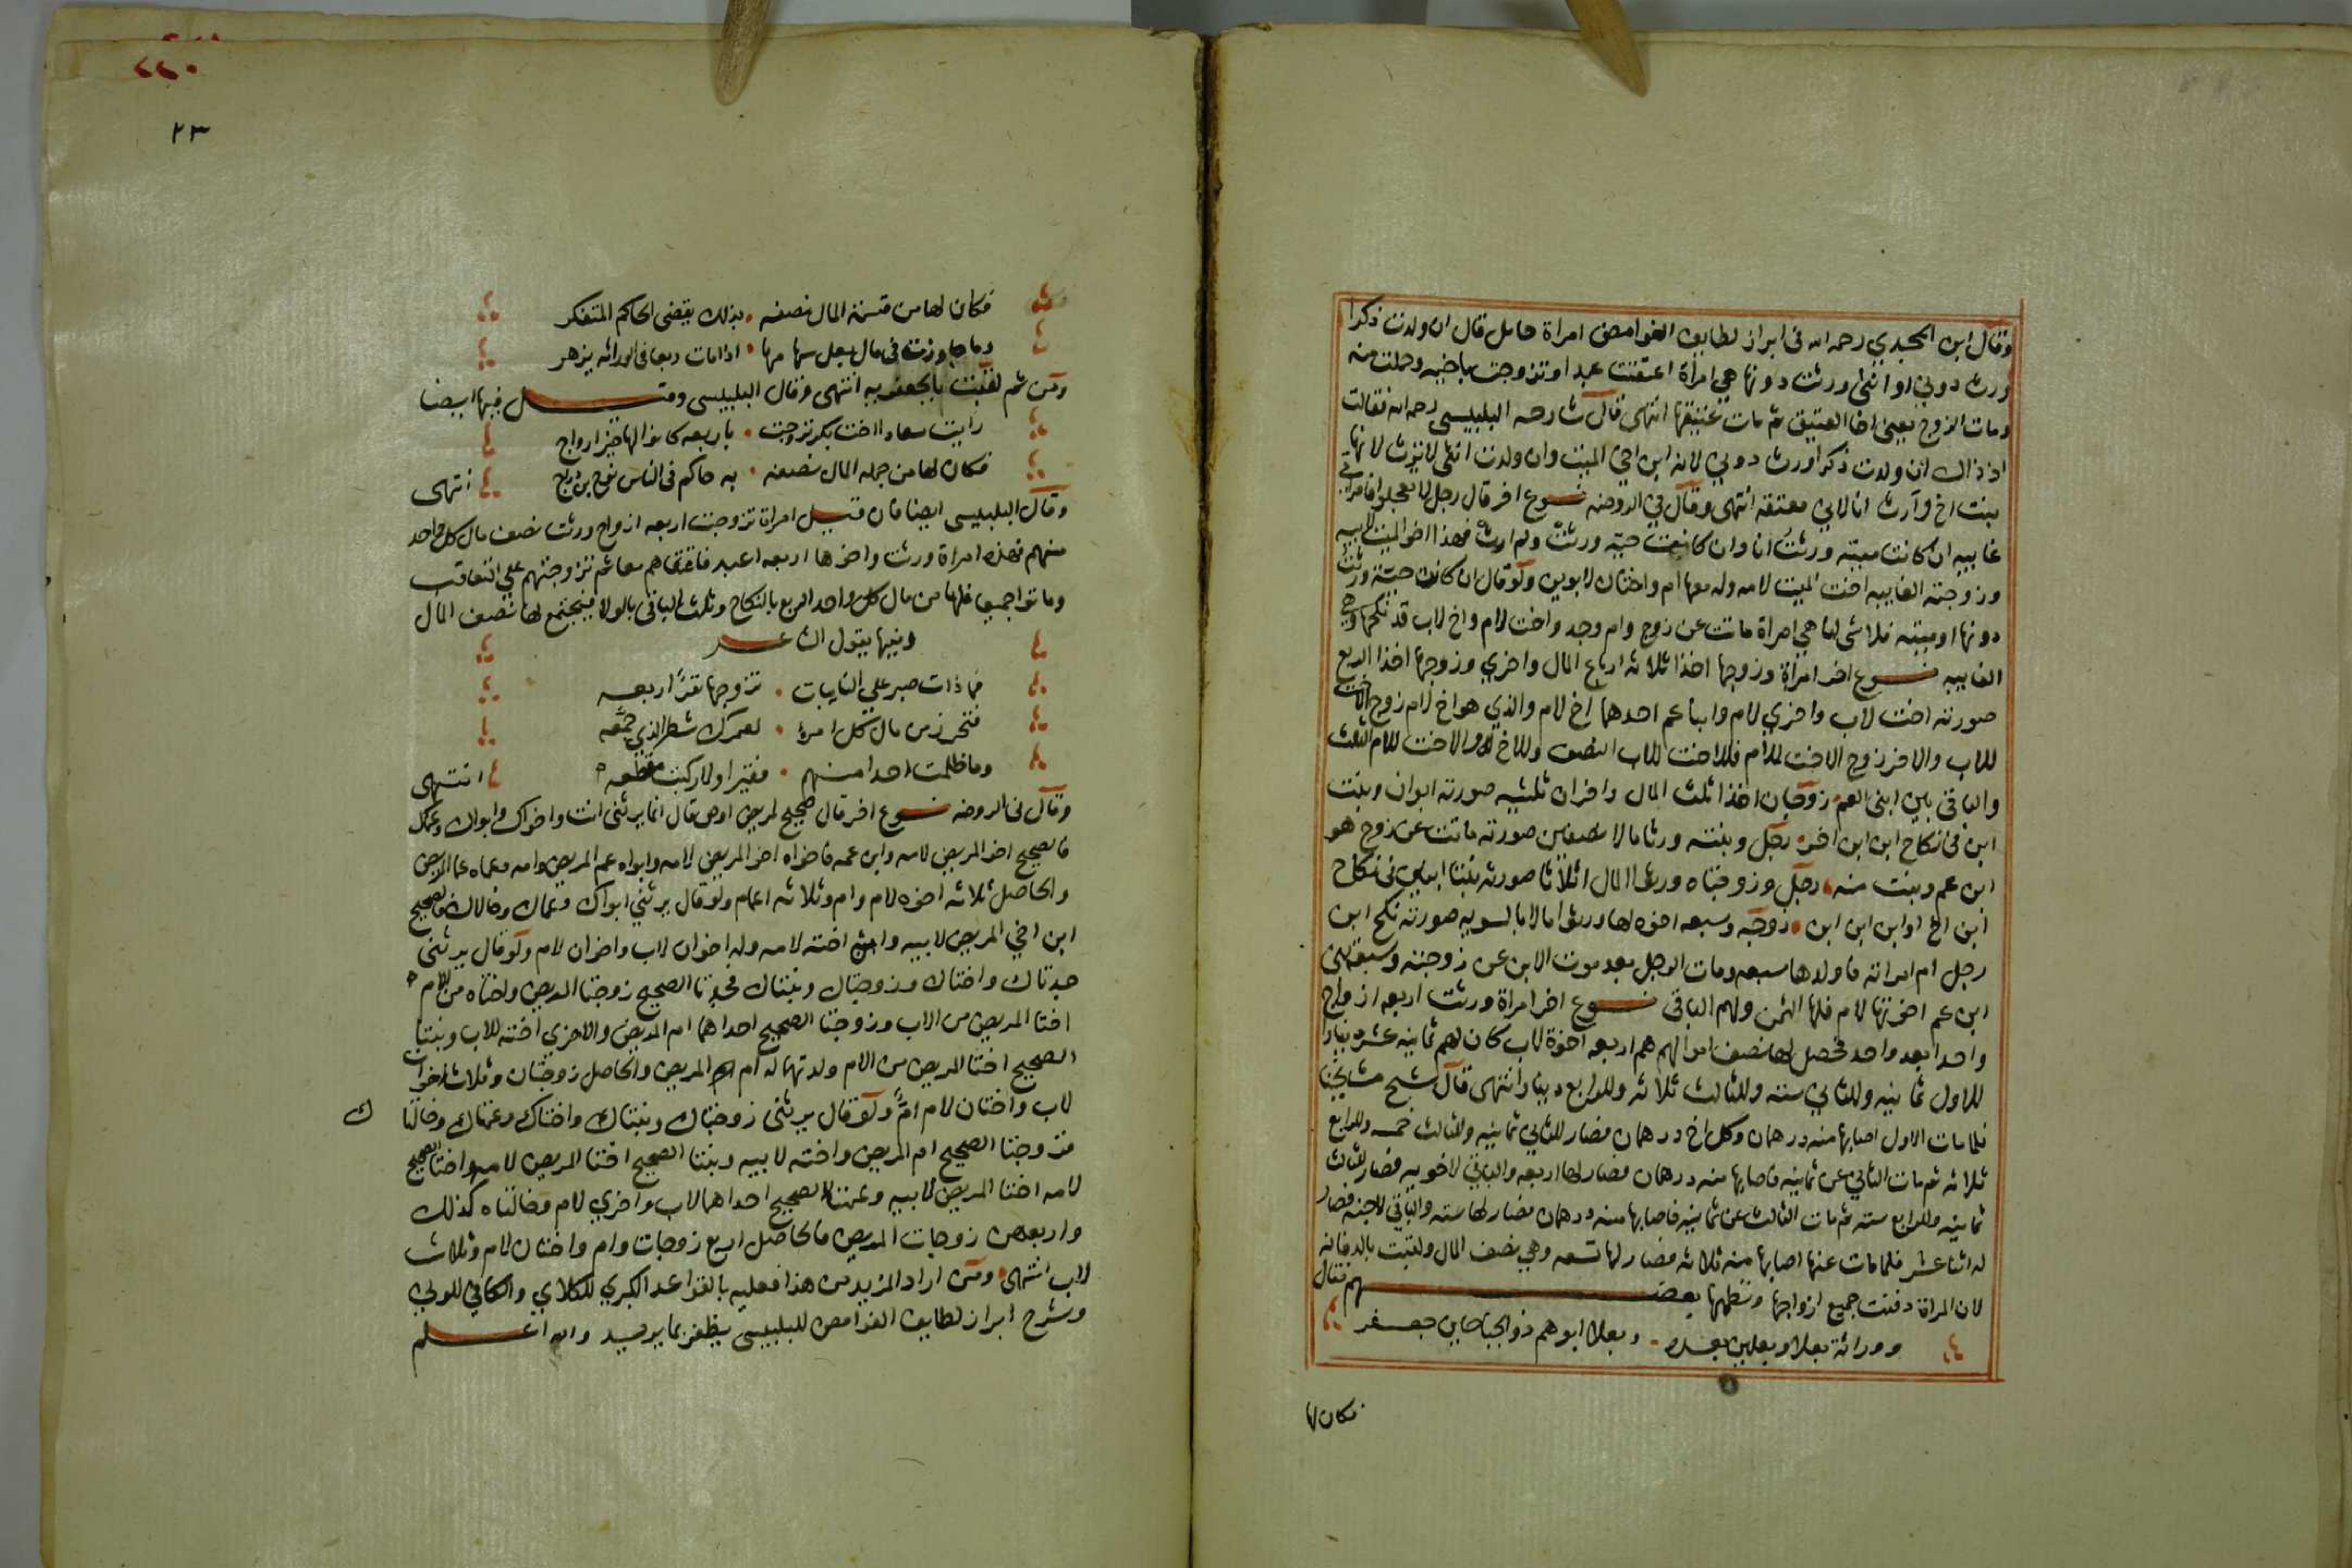 وقال ابن المجدي رحمه الله في ابراز لطايف الغوامض امراة حامل قال ان ولدت ذكرا
ورث دوني او انثى ورثت دونها هي امراة اعتقت عبدا وتزوجت باخيه وحملت منه
ومات الزوج يعني اخا العتيق ثم مات عتيقها انتهى قال شارحه البلبيسي رحمه الله فقالت
اذ ذاك ان ولدت ذكرا ورث دوني لانه ابن اخي الميت وان ولدت انثى لا ترث لانها
بنت اخ وارث انا لاني معتقه انتهى وقال في الروضه نوع اخر قال رجل لا تعجلوا فامراتي
غايبه ان كانت ميته ورثت انا وان كانت حيه ورثت ولم ارث فهذا اخو الميت لابيه
وزوجته الغايبه اخت الميت لامه وله معهما ام واختان لابوين ولو قال ان كانت حيه ورثت
دونها او ميته فلا شى لنا هي امراة ماتت عن زوج وام وجد واخت لام واخ لاب قد نكحها وهي
الغايبه نوع اخر امراة وزوجها اخذا ثلاثه ارباع المال واخري وزوجها اخذا الربع
صورته اخت لاب واخري لام وابنا عم احدهما اخ لام والذي هو اخ لام زوج الاخت
للاب والاخر زوج الاخت للام فللاخت للاب النصف وللاخ للام والاخت للام الثلث
والباقى بين ابنى العم زوجان اخذا ثلث المال واخران ثلثيه صورته ابوان وبنت
ابن في نكاح ابن ابن اخر رجل وبنته ورثا مالا نصفين صورته ماتت عن زوج هو
ابن عم وبنت منه رجل وزوجتاه ورثوا المال اثلاثا صورته بنتا ابنين في نكاح
ابن اخ او ابن ابن ابن زوجه وسبعه اخوه لها ورثوا مالا بالسويه صورته نكح ابن
رجل ام امراته فاولدها سبعه ومات الرجل بعد موت الابن عن زوجته وسبعة بنى
ابن عم اخوتها لام فلها الثمن ولهم الباقى نوع اخر امراة ورثت اربعه ازواج
واحدا بعد واحد فحصل لها نصف اموالهم هم اربعه اخوة لاب كان لهم ثمانيه عشر دينار
للاول ثمانيه وللثاني سته وللثالث ثلاثه وللرابع دينار انتهى قال شيخ مشايخنا
فلما مات الاول اصابها منه درهمان وكل اخ درهمان فصار للثاني ثمانيه وللثالث خمسه وللرابع
ثلاثه ثم مات الثاني عن ثمانيه فاصابها منه درهمان فصار لها اربعه والباقي لاخويه فصار للثالث
ثمانيه وللرابع سته ثم مات الثالث عن ثمانيه فاصابها منه درهمان فصار لها سته والباقي لاخيه فصار
له اثنا عشر فلما مات عنها اصابها منه ثلاثه فصار لها تسعه وهي نصف المال ولقبت بالدفانه
لان المراة دفنت جميع ازواجها ونظمها بعضهم فقال
ووراثة بعلا وبعلين بعده وبعلا ابوهم ذو الجناحين جعفر
فكان لها
٢٣
فكان لها من قسمة المال نصفه بذلك يقضى الحاكم المتفكر
وما جاوزت في مال بعل سهامها اذا مات ربعا في الوراثه يزهر
ومن ثم لقبت بالجعفريه انتهى وقال البلبيسي وقيل فيها ايضا
رايت سعاد اخت بكر تزوجت باربعه كانوا لها خير ازواج
فكان لها من جمله المال نصفه به حاكم في الناس نوح بن دراج انتهى
وقال البلبيسي ايضا فان قيل امراة تزوجت اربعه ازواج ورثت نصف مال كل واحد
منهم فهذه امراة ورثت واخوها اربعه اعبد فاعتقاهم معا ثم تزوجتهم علي التعاقب
وماتوا جميعا فلها من مال كل واحد الربع بالنكاح وثلث الباقى بالولا فيجتمع لها نصف المال
وفيها يقول الشاعر
فما ذات صبر علي النايبات تزوجها نفر اربعه
فتحرز من مال كل امرئ لعمرك شطر الذي جمعه
وما ظلمت احدا منهم فقيرا ولا ركبت مفظعه انتهى
وقال في الروضه نوع اخر قال صحيح لمريض اوص فقال انما يرثني انت واخواك وابواك وعماك
فالصحيح اخو المريض لامه وابن عمه فاخواه اخو المريض لامه وابواه عم المريض وامه وعماه عما المريض
والحاصل ثلاثه اخوه لام وام وثلاثه اعمام ولو قال يرثني ابواك وعماك وخالاك فالصحيح
ابن اخي المريض لابيه وابن اخته لامه وله اخوان لاب واخوان لام ولو قال يرثنى
جدتاك واختاك وزوجتاك وبنتاك فجدتا الصحيح زوجتا المريض واختاه من الام
اختا المريض من الاب وزوجتا الصحيح احداهما ام المريض والاخري اخته للاب وبنتا
الصحيح اختا المريض من الام ولدتهما له ام المريض والحاصل زوجتان وثلاث اخوات
لاب واختان لام وام ولو قال يرثنى زوجتاك وبنتاك واختاك وعمتاك وخالتا
ك
فزوجتا الصحيح ام المريض واخته لابيه وبنتا الصحيح اختا المريض لامه واختا الصحيح
لامه اختا المريض لابيه وعمتا الصحيح احداهما لاب واخري لام وخالتاه كذلك
واربعهن زوجات المريض فالحاصل اربع زوجات وام واختان لام وثلاث
لاب انتهى ومن اراد المزيد من هذا فعليه بالقواعد الكبري للكلاي والكافي للولي
وشرح ابراز لطايف الغوامض للبلبيسي يظفر بما يريد والله اعلم